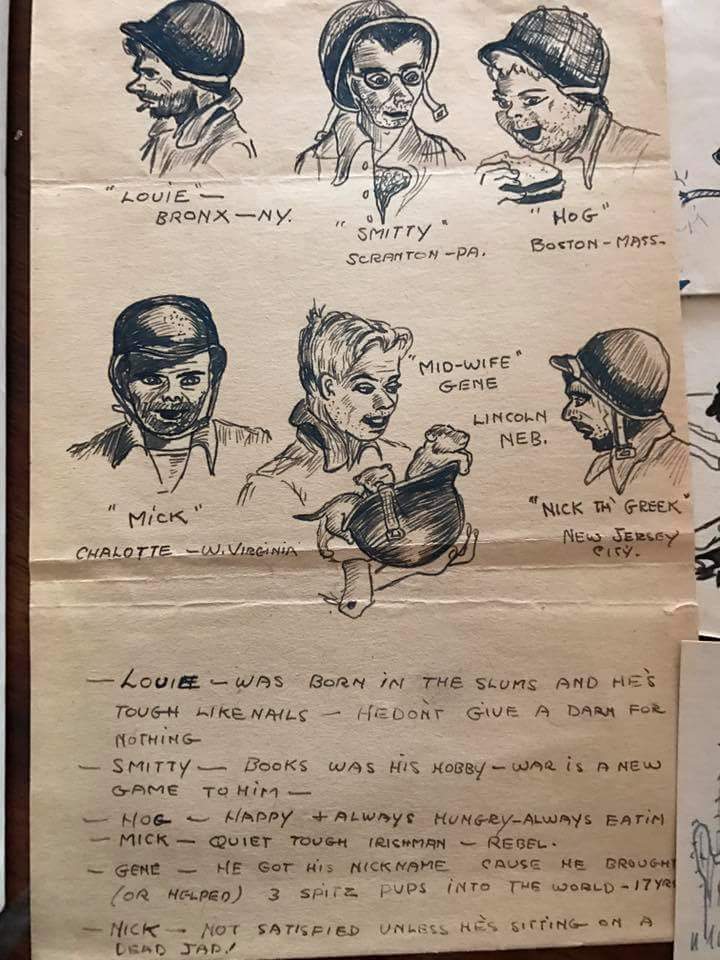 "LOUIE" —
BRONX — N.Y.
"SMITTY"
SCRANTON - PA.
"HOG"
BOSTON - MASS.
"MICK"
CHALOTTE - W. VIRGINIA
"MID-WIFE"
GENE
LINCOLN
NEB.
"NICK TH' GREEK"
NEW JERSEY
CITY.
— LOUIE — WAS BORN IN THE SLUMS AND HE'S
TOUGH LIKE NAILS — HE DON'T GIVE A DARN FOR
NOTHING
— SMITTY — BOOKS WAS HIS HOBBY — WAR IS A NEW
GAME TO HIM —
— HOG — HAPPY + ALWAYS HUNGRY - ALWAYS EATIN
— MICK — QUIET TOUGH IRISHMAN — REBEL.
— GENE — HE GOT HIS NICKNAME CAUSE HE BROUGHT
(OR HELPED) 3 SPITZ PUPS INTO THE WORLD - 17 YRS
— NICK — NOT SATISFIED UNLESS HE'S SITTING ON A
DEAD JAP!